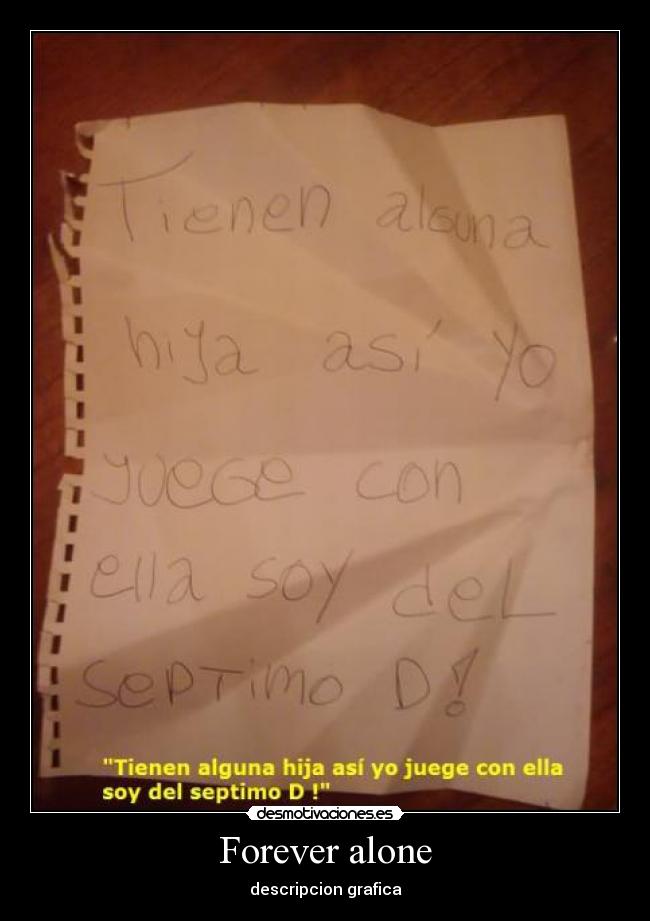 Tienen alguna
hija así yo
juege con
ella soy del
septimo D!
"Tienen alguna hija así yo juege con ella
soy del septimo D !"
desmotivaciones.es
Forever alone
descripcion grafica